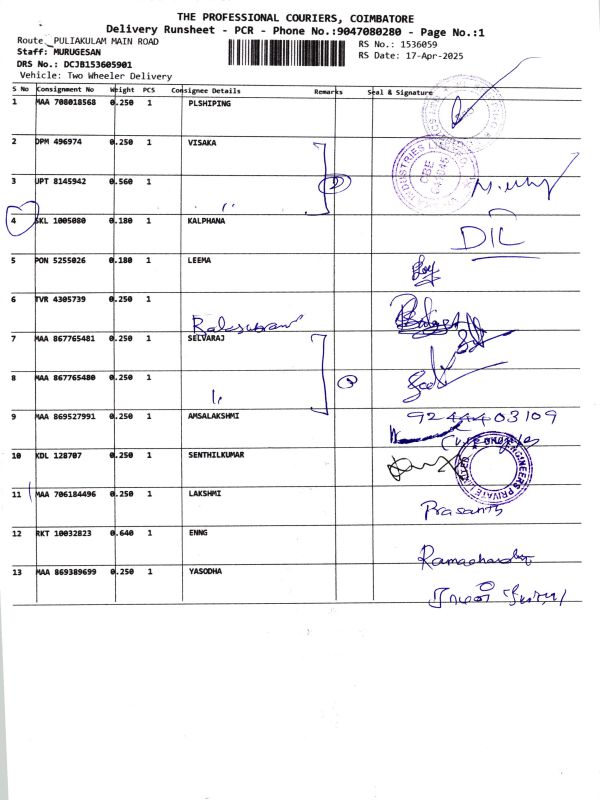 THE PROFESSIONAL COURIERS, COIMBATORE
Delivery Runsheet - PCR - Phone No.:9047080280 - Page No.:1
Route PULIAKULAM MAIN ROAD
RS No.: 1536059
Staff: MURUGESAN
RS Date: 17-Apr-2025
DRS No.: DCJB153605901
Vehicle: Two Wheeler Delivery
S No Consignment No Weight PCS Consignee Details Remarks Seal & Signature
1 MAA 708018568 0.250 1 PLSHIPING
2 DPM 496974 0.250 1 VISAKA
3 JPT 8145942 0.560 1 〃 2
4 SKL 1005080 0.180 1 KALPHANA DIL
5 PON 5255026 0.180 1 LEEMA
6 TVR 4305739 0.250 1
7 MAA 867765481 0.250 1 SELVARAJ
8 MAA 867765480 0.250 1 〃
9 MAA 869527991 0.250 1 AMSALAKSHMI 9244403109
10 KDL 128707 0.250 1 SENTHILKUMAR
11 MAA 706184496 0.250 1 LAKSHMI Prasanth
12 RKT 10032823 0.640 1 ENNG
13 MAA 869389699 0.250 1 YASODHA